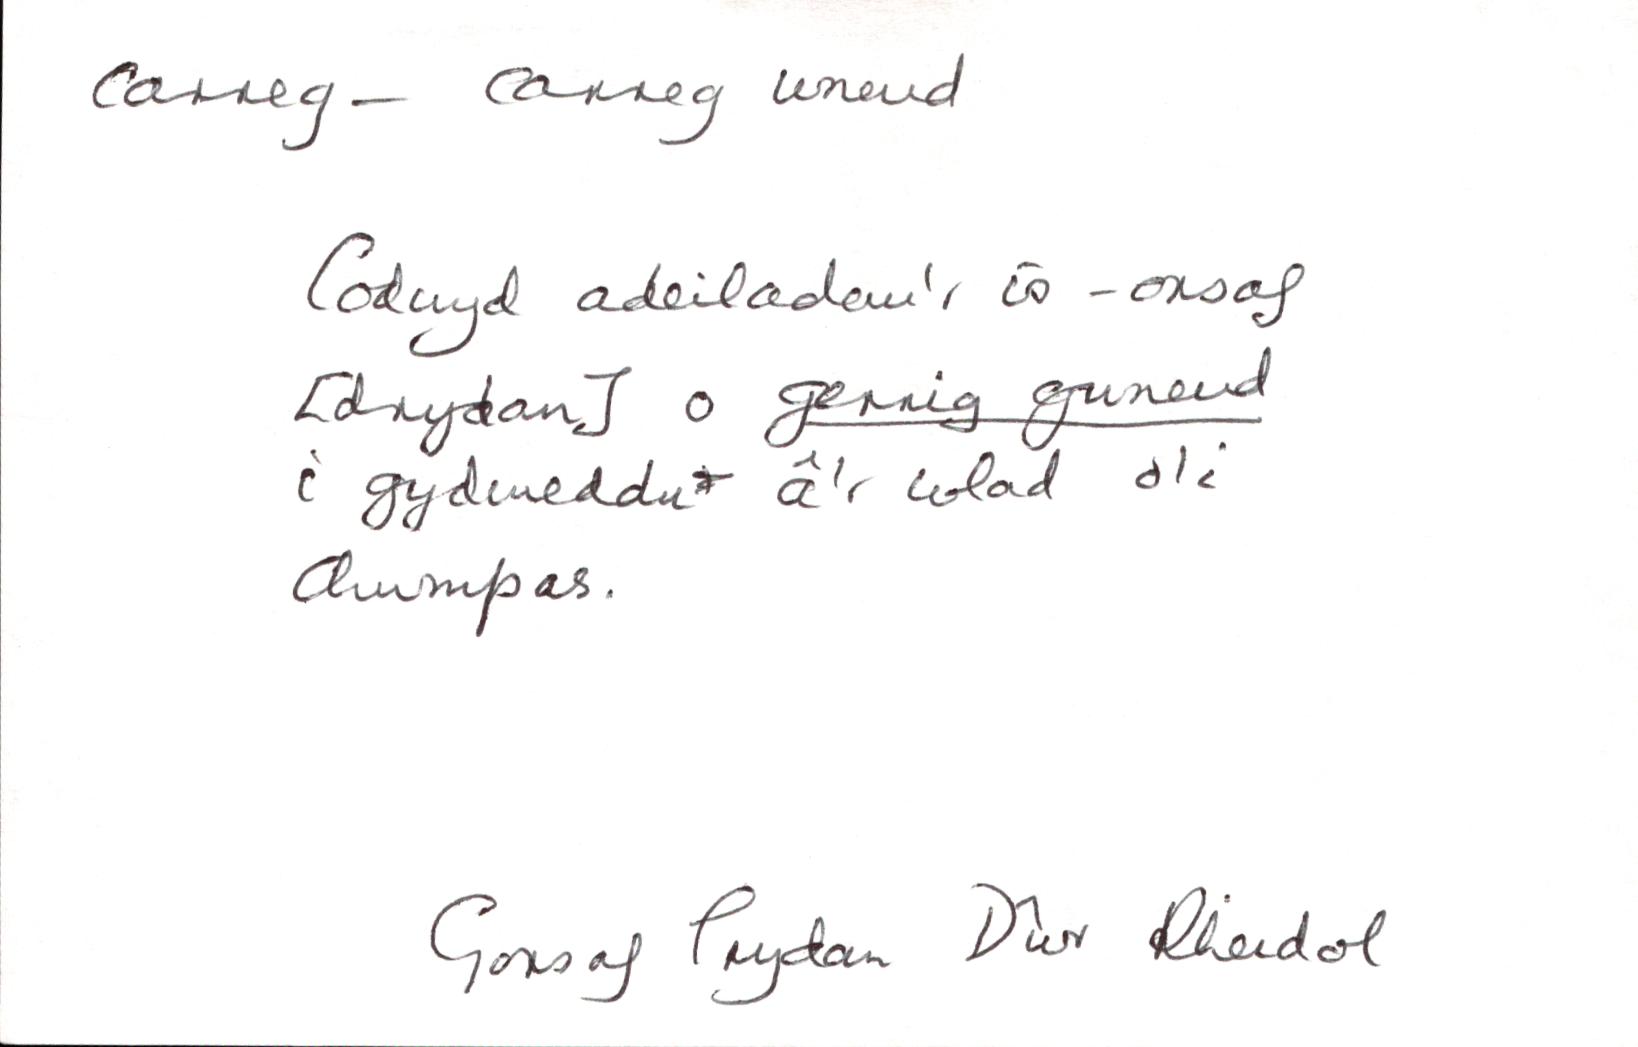 Carreg – Carreg wneud
Codwyd adeiladau'r is-orsaf
[drydan] o gerrig gwneud
i gydweddu â'r wlad o'i
chwmpas.
Gorsaf Trydan Dŵr Rheidol